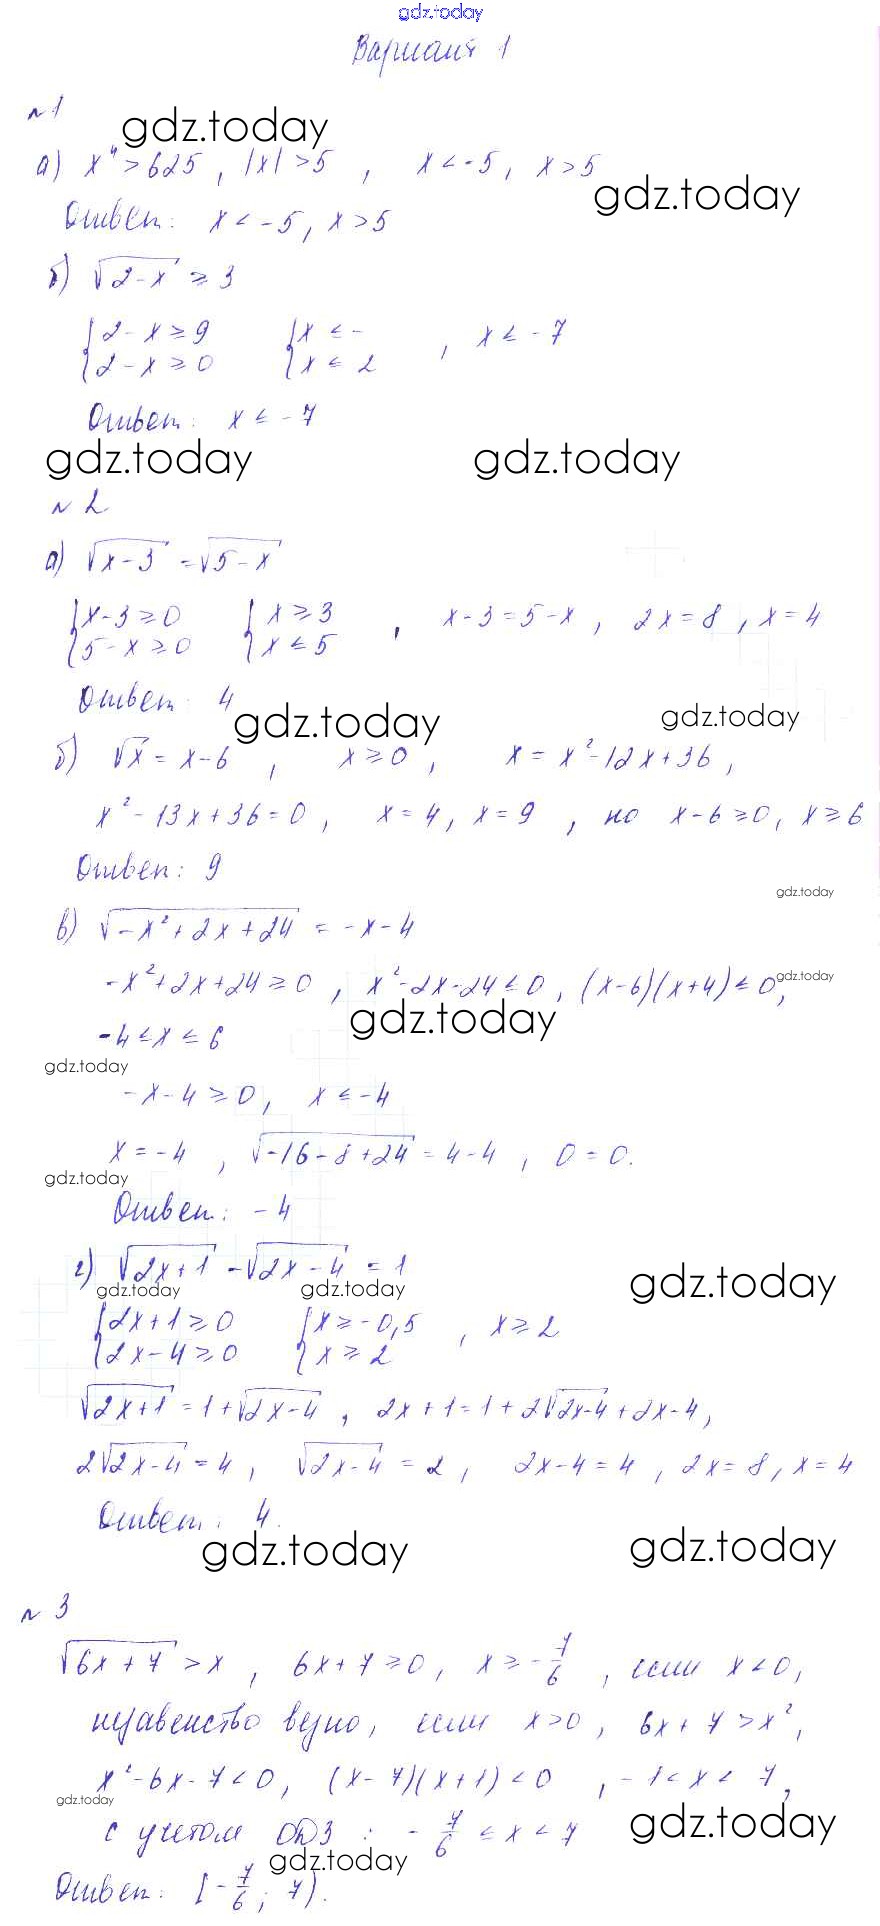 gdz.today
Вариант 1
№1
gdz.today
а) x⁴ > 625, |x| > 5, x < -5, x > 5
gdz.today
Ответ: x < -5, x > 5
б) √(2-x) ≥ 3
{2-x ≥ 9 {x ≤ -
{2-x ≥ 0 {x ≤ 2 , x ≤ -7
Ответ: x ≤ -7
gdz.today gdz.today
№2
а) √(x-3) = √(5-x)
{x-3 ≥ 0 {x ≥ 3
{5-x ≥ 0 {x ≤ 5 , x-3=5-x, 2x=8, x=4
Ответ: 4
gdz.today gdz.today
б) √x = x-6, x ≥ 0, x = x²-12x+36,
x²-13x+36=0, x=4, x=9, но x-6 ≥ 0, x ≥ 6
Ответ: 9
gdz.today
в) √(-x²+2x+24) = -x-4
-x²+2x+24 ≥ 0, x²-2x-24 ≤ 0, (x-6)(x+4) ≤ 0,
gdz.today
gdz.today
-4 ≤ x ≤ 6
gdz.today
-x-4 ≥ 0, x ≤ -4
x = -4, √(-16-8+24) = 4-4, 0 = 0.
gdz.today
Ответ: -4
г) √(2x+1) - √(2x-4) = 1
gdz.today gdz.today gdz.today
{2x+1 ≥ 0 {x ≥ -0,5
{2x-4 ≥ 0 {x ≥ 2 , x ≥ 2
√(2x+1) = 1+√(2x-4), 2x+1=1+2√(2x-4)+2x-4,
2√(2x-4) = 4, √(2x-4) = 2, 2x-4=4, 2x=8, x=4
Ответ: 4.
gdz.today gdz.today
№3
√(6x+7) > x, 6x+7 ≥ 0, x ≥ -7/6, если x < 0,
неравенство верно, если x > 0, 6x+7 > x²,
x²-6x-7 < 0, (x-7)(x+1) < 0, -1 < x < 7,
gdz.today
с учетом ОДЗ: -7/6 ≤ x < 7
gdz.today
gdz.today
Ответ: [-7/6; 7).